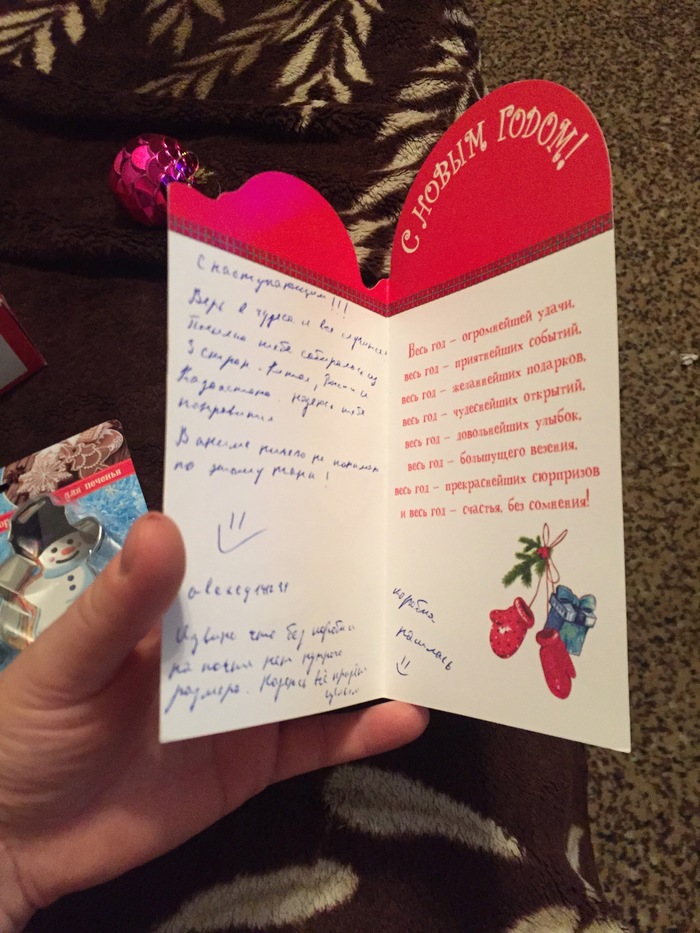 С наступающим!!!
Верь в чудеса и все случится
Посылка тебе собиралась из
3 стран - Китая, России и
Казахстана. надеюсь тебе
понравится
В аниме ничего не понимаю
по этому тани!
Извини что без коробки
на почте нет нужного
размера. Надеюсь всё придёт
целым
С НОВЫМ ГОДОМ!
Весь год – огромнейшей удачи,
весь год – приятнейших событий,
весь год – желаннейших подарков,
весь год – чудеснейших открытий,
весь год – довольнейших улыбок,
весь год – большущего везения,
весь год – прекраснейших сюрпризов
и весь год – счастья, без сомнения!
коробка
нашлась
для печенья